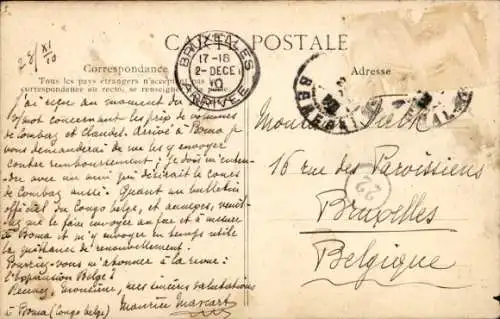 28/XI/10
CARTE POSTALE
Correspondance
Adresse
Tous les pays étrangers n'acceptent pas
correspondance au recto, se renseigner à la
BRUXELLES
17-18
2-DECE
10
ARRIVÉE
J'ai reçu au moment du
mot concernant les prix de volumes
de Combaz et Claudel. Arrivé à Boma je
vous demanderai de me les y envoyer
contre remboursement; je dois m'enten-
dre avec un ami qui désirait le cours
de Combaz aussi. Quant au bulletin
officiel du Congo belge, et annexes, veuil-
lez me le faire envoyer au fur et à mesure
à Boma et m'y envoyer en temps utile
la quittance de renouvellement.
Pourriez-vous m'abonner à la revue:
l'expansion Belge?
Recevez, monsieur, mes sincères salutations
à Boma (Congo belge) Maurice
16 rue des Paroissiens
22
Bruxelles
Belgique